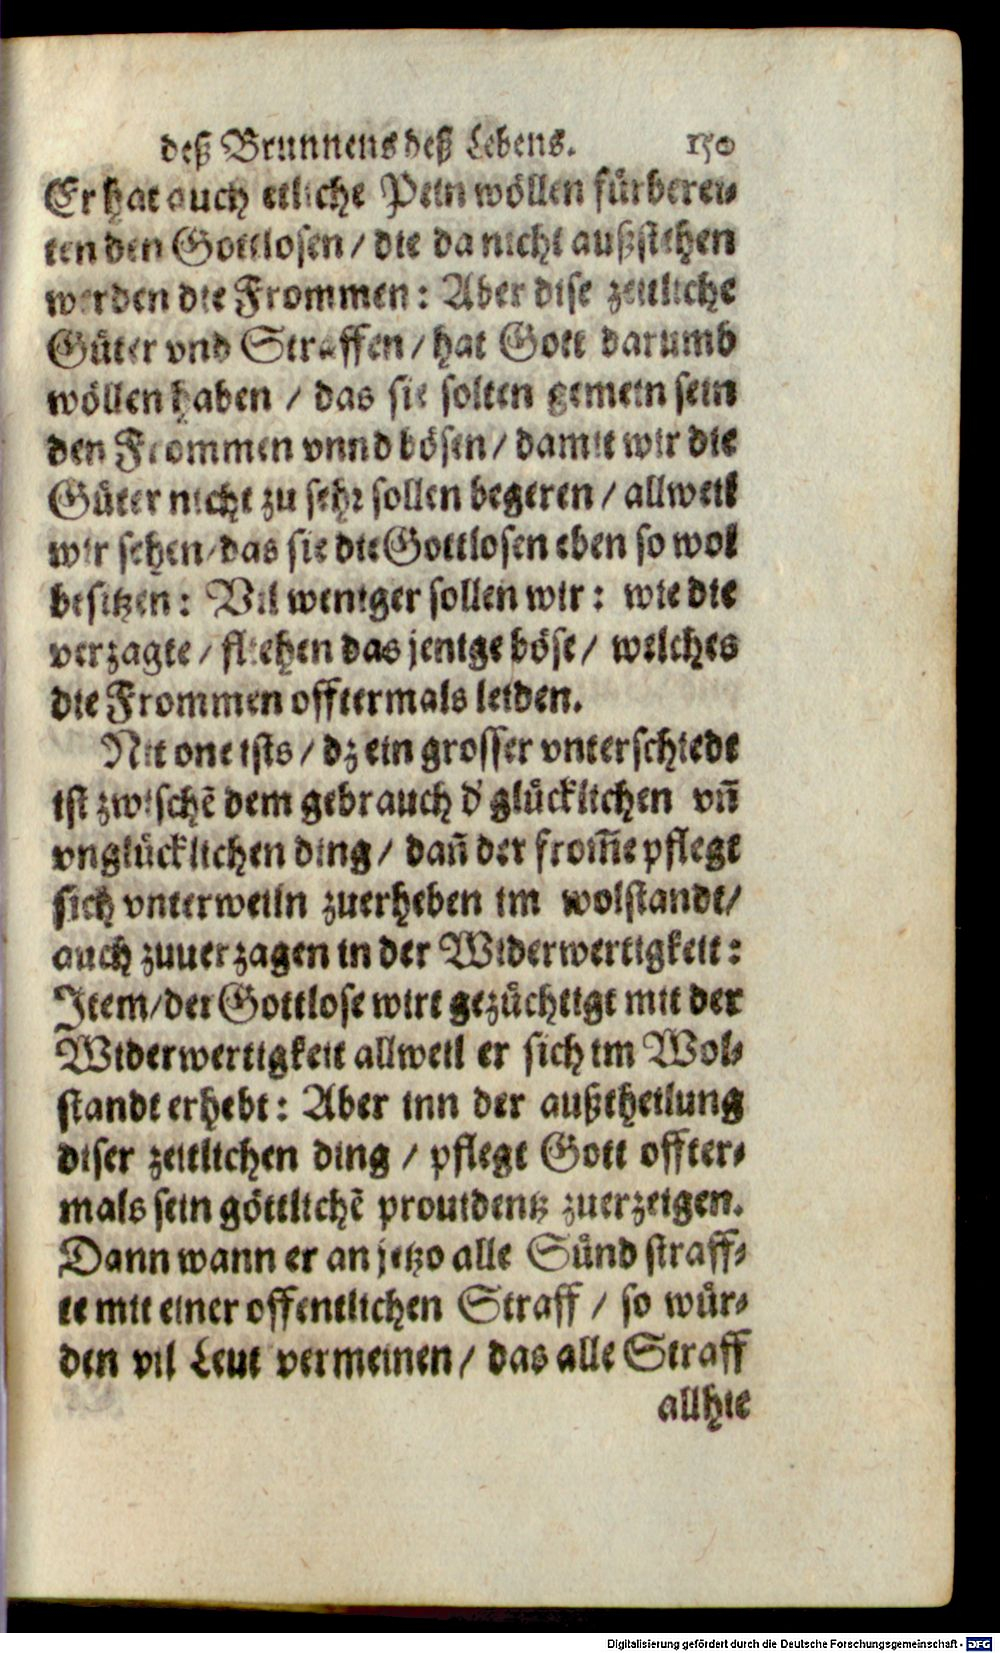 deß Brunnens deß Lebens. 150
Er hat auch etliche Pein wöllen fürberei⸗
ten den Gottlosen / die da nicht außstehen
werden die Frommen: Aber dise zeitliche
Güter vnd Straffen / hat Gott darumb
wöllen haben / das sie solten gemein sein
den Frommen vnnd bösen / damit wir die
Güter nicht zu sehr sollen begeren / allweil
wir sehen / das sie die Gottlosen eben so wol
besitzen: Vil weniger sollen wir: wie die
verzagte / fliehen das jenige böse / welches
die Frommen offtermals leiden.
Nit one ists / dz ein grosser vnterschiede
ist zwischē dem gebrauch d' glücklichen vn̄
vnglücklichen ding / dan̄ der from̄e pflegt
sich vnterweiln zuerheben im wolstande /
auch zuuerzagen in der Widerwertigkeit:
Item / der Gottlose wirt gezüchtigt mit der
Widerwertigkeit allweil er sich im Wol⸗
stande erhebt: Aber inn der außtheilung
diser zeitlichen ding / pflegt Gott offter⸗
mals sein göttlichē prouidentz zuerzeigen.
Dann wann er an jetzo alle Sünd straff⸗
te mit einer offentlichen Straff / so wür⸗
den vil Leut vermeinen / das alle Straff
allhie
Digitalisierung gefördert durch die Deutsche Forschungsgemeinschaft - DFG